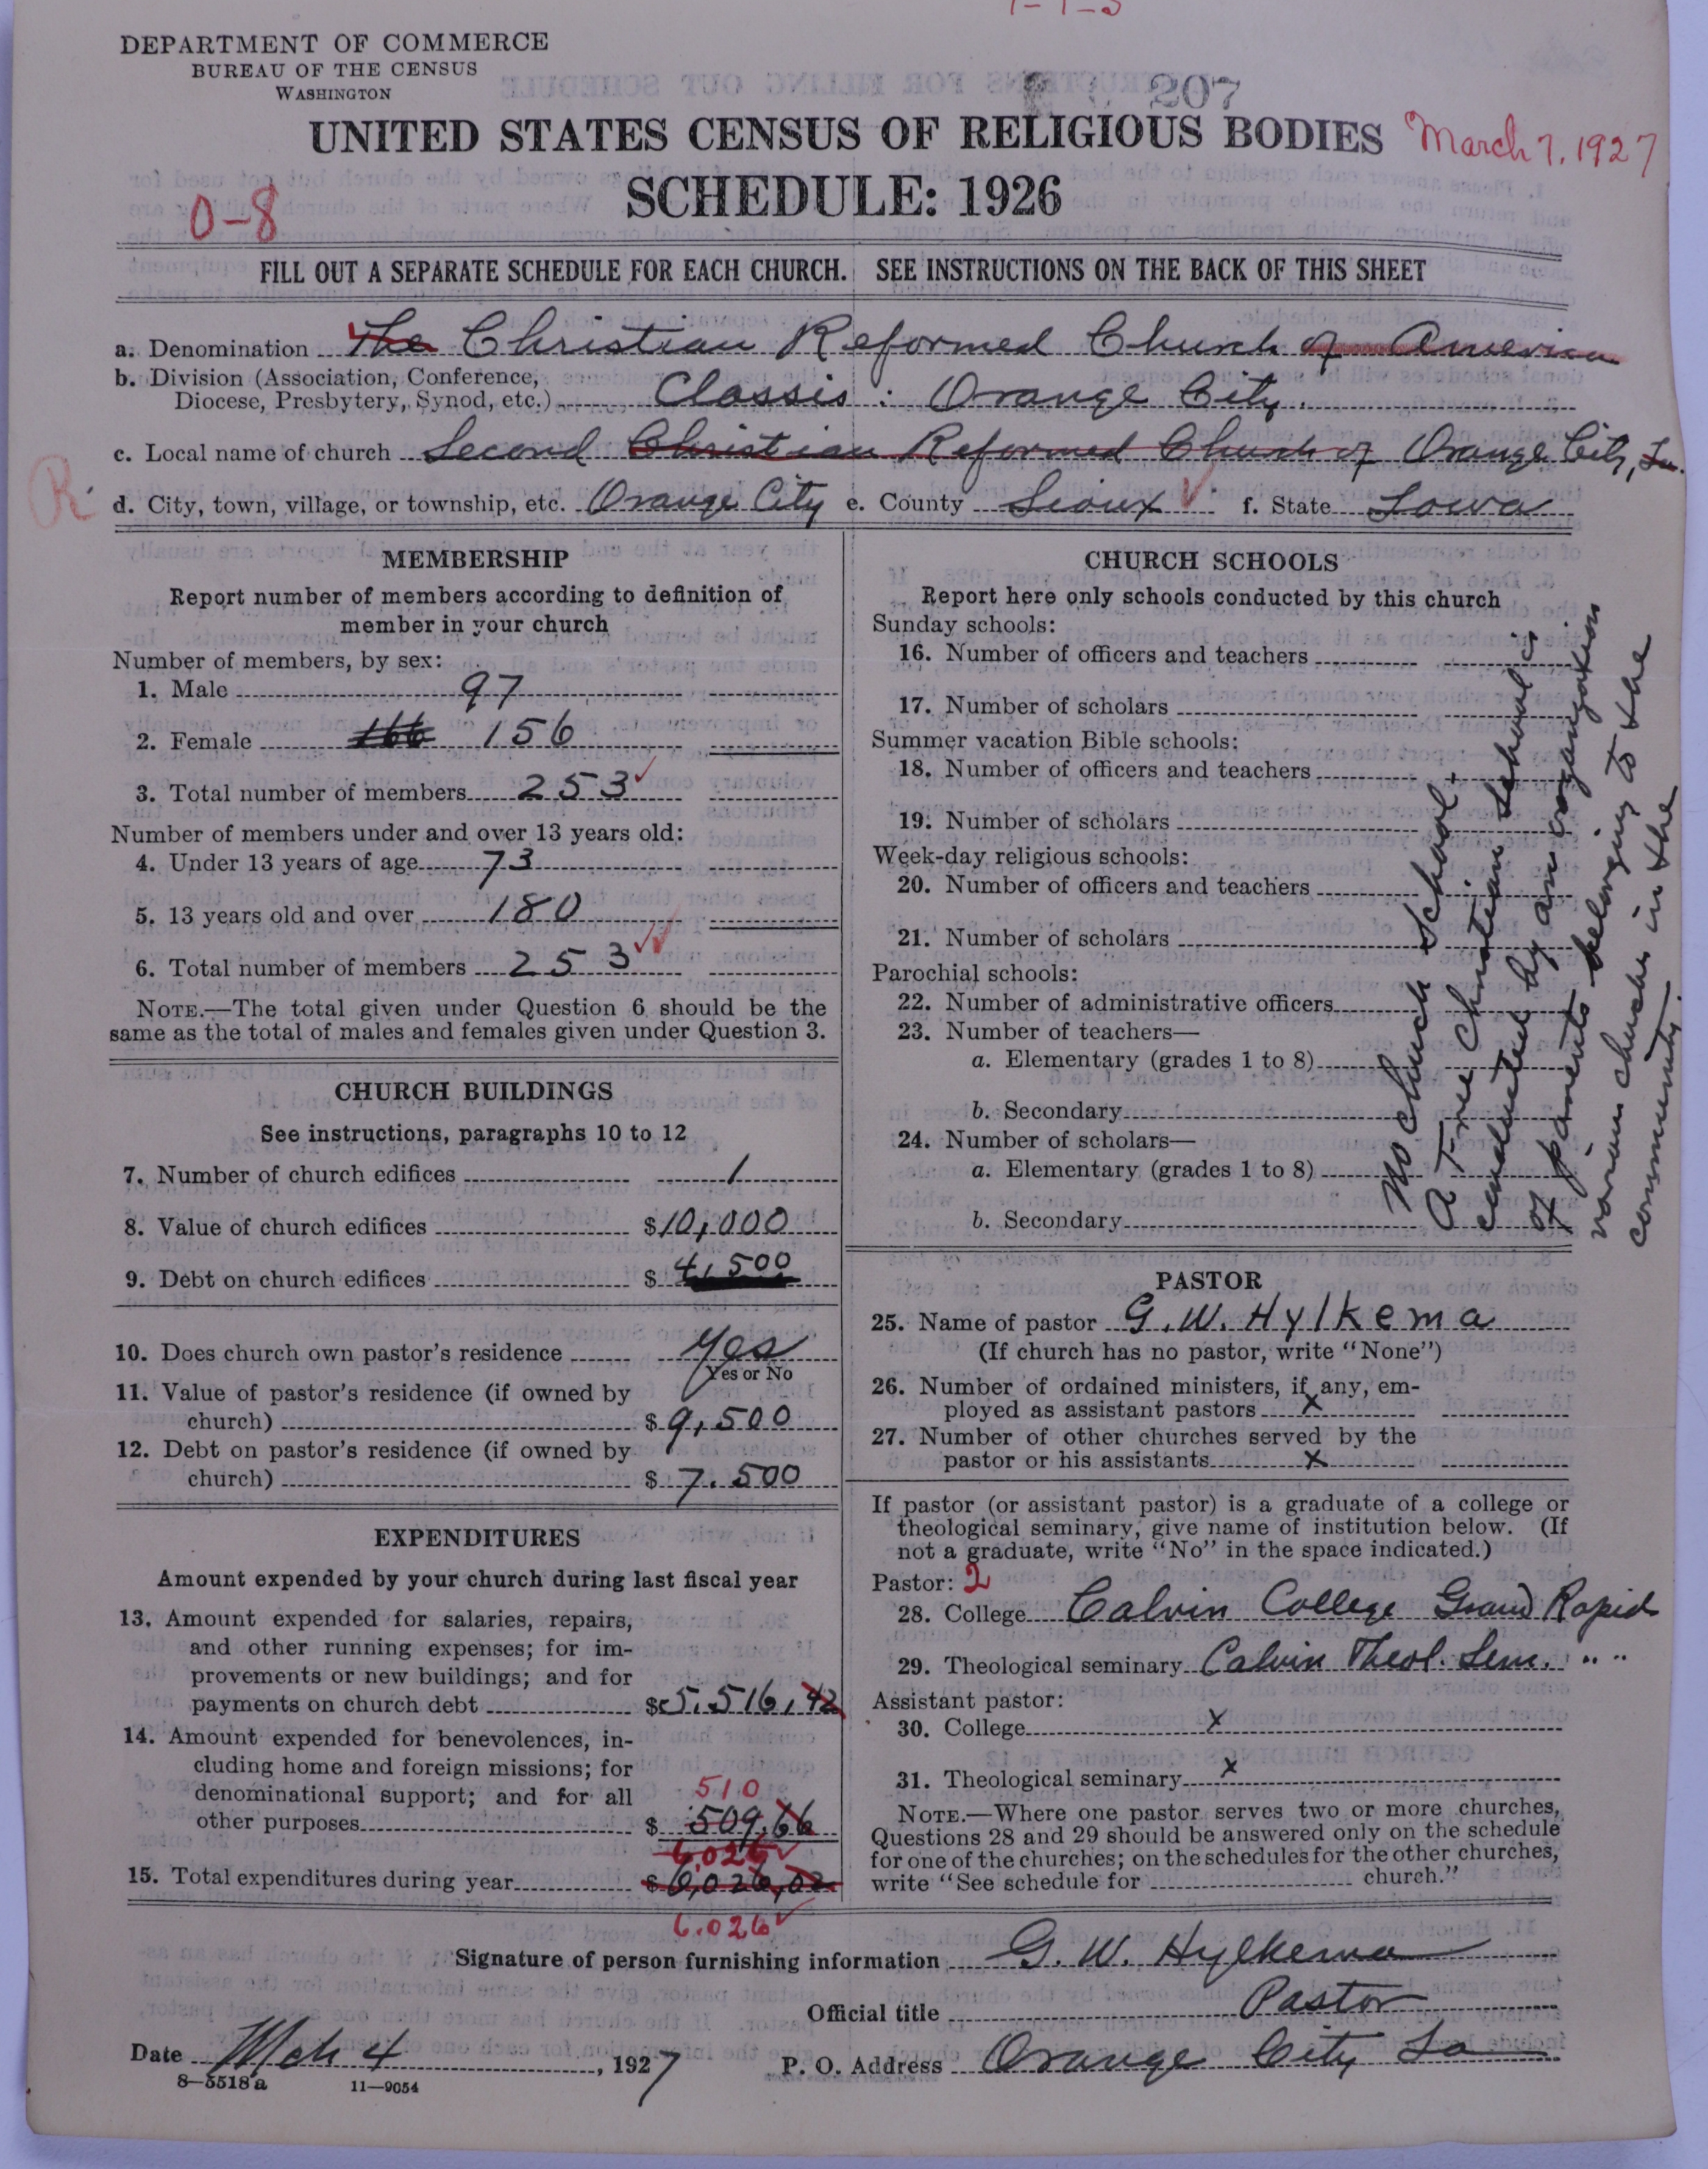 1-1-3
DEPARTMENT OF COMMERCE
BUREAU OF THE CENSUS
WASHINGTON
207
UNITED STATES CENSUS OF RELIGIOUS BODIES
March 7, 1927
SCHEDULE: 1926
0-8
FILL OUT A SEPARATE SCHEDULE FOR EACH CHURCH. SEE INSTRUCTIONS ON THE BACK OF THIS SHEET
a. Denomination The Christian Reformed Church of America
b. Division (Association, Conference,
Diocese, Presbytery, Synod, etc.) Classis: Orange City.
c. Local name of church Second Christian Reformed Church of Orange City, Ia.
R
d. City, town, village, or township, etc. Orange City e. County Sioux ✓ f. State Iowa
MEMBERSHIP
Report number of members according to definition of
member in your church
Number of members, by sex:
1. Male 97
2. Female 166 156
3. Total number of members 253 ✓
Number of members under and over 13 years old:
4. Under 13 years of age 73
5. 13 years old and over 180
6. Total number of members 253 ✓✓
NOTE.—The total given under Question 6 should be the
same as the total of males and females given under Question 3.
CHURCH BUILDINGS
See instructions, paragraphs 10 to 12
7. Number of church edifices 1
8. Value of church edifices $10,000
9. Debt on church edifices $ 4,500
10. Does church own pastor's residence Yes
Yes or No
11. Value of pastor's residence (if owned by
church) $ 9,500
12. Debt on pastor's residence (if owned by
church) $ 7.500
EXPENDITURES
Amount expended by your church during last fiscal year
13. Amount expended for salaries, repairs,
and other running expenses; for im-
provements or new buildings; and for
payments on church debt $5.516,42
14. Amount expended for benevolences, in-
cluding home and foreign missions; for
denominational support; and for all
510
other purposes $ 509.66
6.026 ✓
15. Total expenditures during year $6,026,02
6.026 ✓
CHURCH SCHOOLS
Report here only schools conducted by this church
Sunday schools:
16. Number of officers and teachers
17. Number of scholars
Summer vacation Bible schools:
18. Number of officers and teachers
19. Number of scholars
Week-day religious schools:
20. Number of officers and teachers
21. Number of scholars
Parochial schools:
22. Number of administrative officers
23. Number of teachers—
a. Elementary (grades 1 to 8)
b. Secondary
24. Number of scholars—
a. Elementary (grades 1 to 8)
b. Secondary
No Church School.
A Free Christian School is
conducted by an organization
of parents belonging to the
various churches in the
community.
PASTOR
25. Name of pastor G.W. Hylkema
(If church has no pastor, write "None")
26. Number of ordained ministers, if any, em-
ployed as assistant pastors x
27. Number of other churches served by the
pastor or his assistants x
If pastor (or assistant pastor) is a graduate of a college or
theological seminary, give name of institution below. (If
not a graduate, write "No" in the space indicated.)
Pastor: 2
28. College Calvin College Grand Rapid
29. Theological seminary Calvin Theol. Sem. " "
Assistant pastor:
30. College x
31. Theological seminary x
NOTE.—Where one pastor serves two or more churches,
Questions 28 and 29 should be answered only on the schedule
for one of the churches; on the schedules for the other churches,
write "See schedule for church."
Signature of person furnishing information G. W. Hylkema
Official title Pastor
Date Mch 4, 1927 P. O. Address Orange City Ia
8—5518 a 11—9054